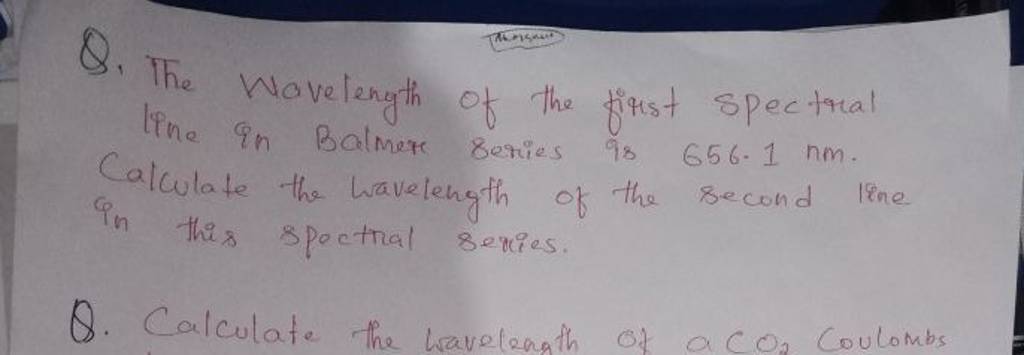 Q. The Wavelength of the first spectral
line in Balmer series is 656.1 nm.
Calculate the wavelength of the second line
in this spectral series.
Q. Calculate the wavelength of a CO2 Coulombs